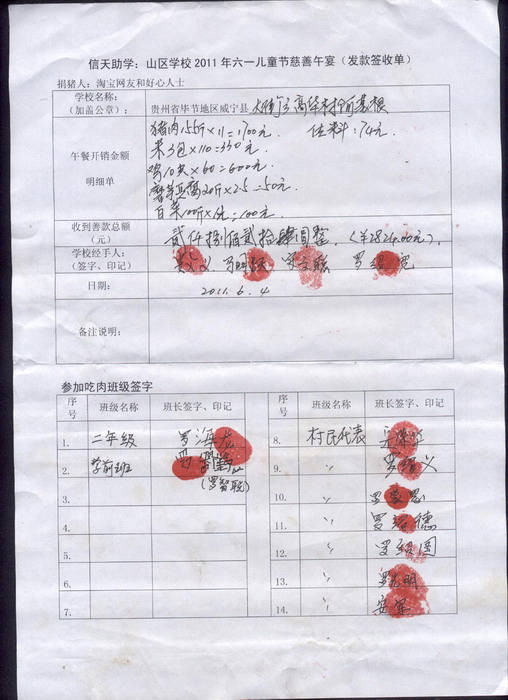 信天助学：山区学校2011年六一儿童节慈善午宴（发款签收单）
捐猪人：淘宝网友和好心人士
学校名称：
（加盖公章）：
贵州省毕节地区威宁县
午餐开销金额
明细单
猪肉155斤×11=1700元 佐料：74元
米3包×110=330元
鸡10只×60=600元
豆腐20斤×2.5=50元
白菜100斤×1元=100元
收到善款总额
（元）
贰仟捌佰贰拾肆圆整 （￥2824.00元）
学校经手人：
（签字、印记）
日期：
2011.6.4
备注说明：
参加吃肉班级签字
序号 班级名称 班长签字、印记 序号 班级名称 班长签字、印记
1. 二年级 罗海龙 8. 村民代表
2. 学前班 9. 〃 罗绍义
（罗智聪）
3. 10. 〃
4. 11. 〃 罗绍德
5. 12. 〃
6. 13. 〃
7. 14. 〃 安军